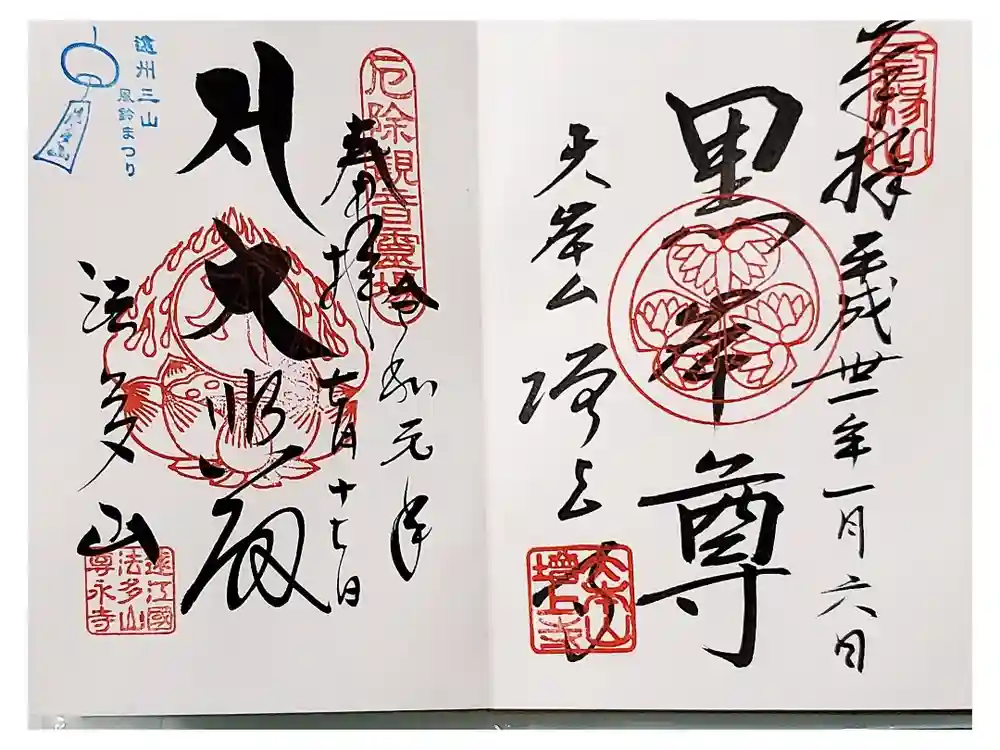 奉拝 平成卅一年一月六日
黒本尊
大本山 増上寺
大本山增上寺
厄除観音霊場
奉拝 令和元年
七月十七日
大悲殿
法多山
遠江國法多山尊永寺
遠州三山
風鈴まつり